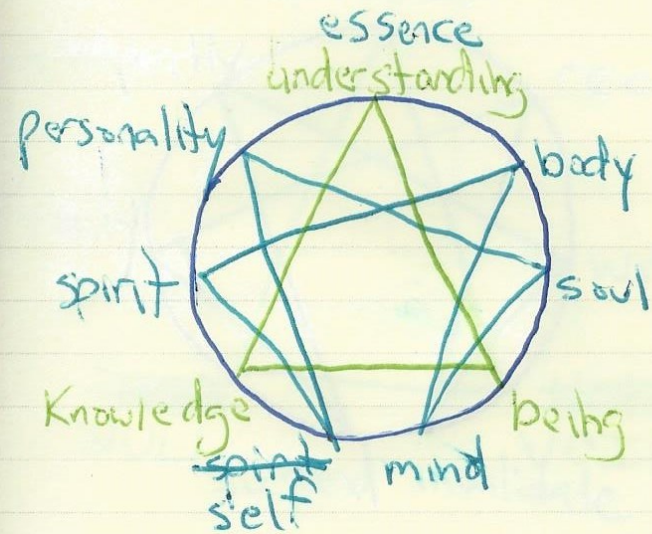 essence
understanding
personality
body
spirit
soul
Knowledge
being
spirit
mind
self